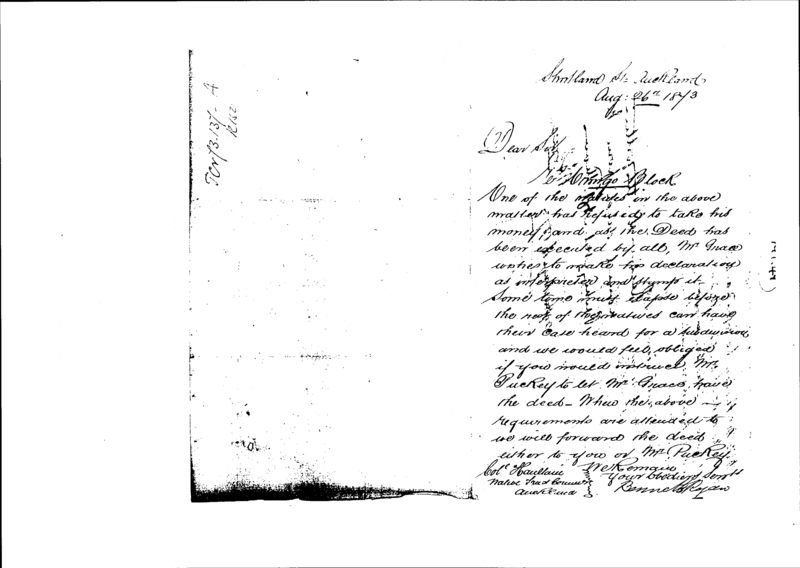 Shortland St. Auckland
Aug: 26th 1873
Dear Sir
Re Block
One of the natives in the above
matter has refused to take his
money, and as the Deed has
been executed by all, Mr Grace
wishes to make his declaration
as interpreter and stamp it.
Some time must elapse before
the rest of the natives can have
their case heard for a subdivision
and we would feel obliged
if you would instruct Mr.
Puckey to let Mr. Grace have
the deed - When the above
requirements are attended to
we will forward the deed
either to you or Mr. Puckey
We Remain
Your obedient Servts
Col. Haultain
Native Commr
Auckland